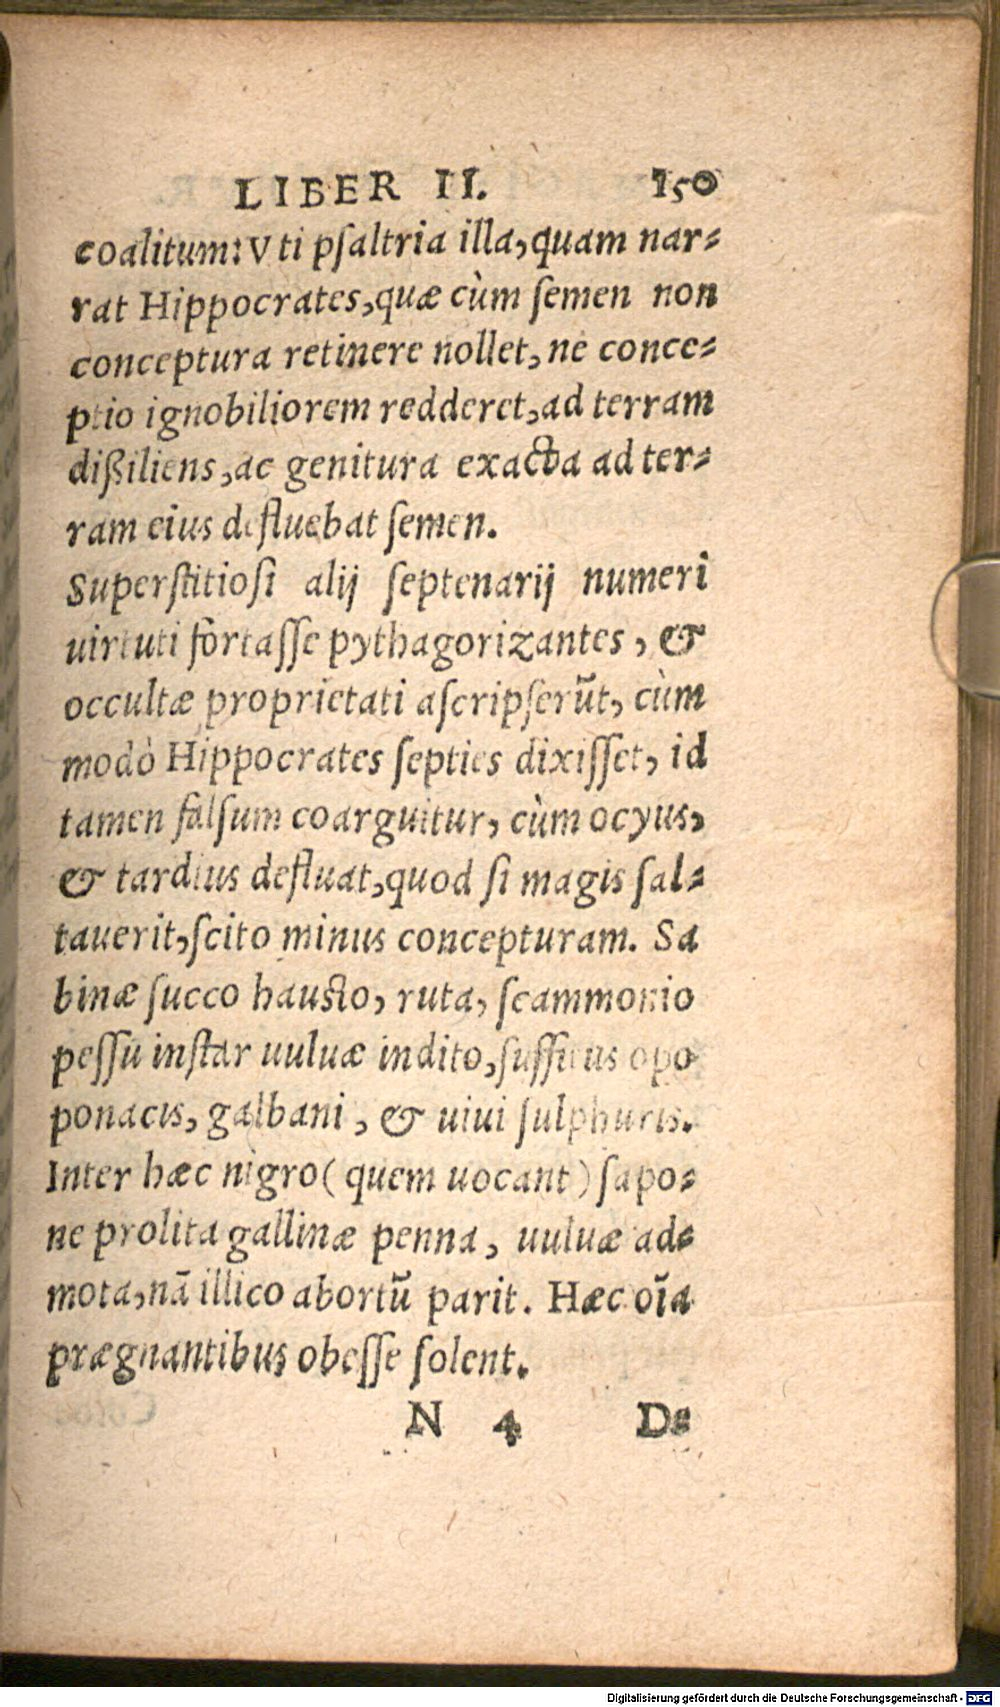 LIBER II. 150
coalitum: Vti psaltria illa, quam nar-
rat Hippocrates, quæ cùm semen non
conceptura retinere nollet, ne conce-
ptio ignobiliorem redderet, ad terram
dißiliens, ac genitura exacta ad ter-
ram eius defluebat semen.
Superstitiosi alij septenarij numeri
uirtuti fortasse pythagorizantes, &
occultæ proprietati ascripserũt, cùm
modò Hippocrates septies dixisset, id
tamen falsum coarguitur, cùm ocyus,
& tardius defluat, quod si magis sal-
tauerit, scito minus concepturam. Sa
binæ succo hausto, ruta, scammonio
pessũ instar uuluæ indito, suffitus opo
ponacis, galbani, & uiui sulphuris.
Inter hæc nigro (quem uocant) sapo-
ne prolita gallinæ penna, uuluæ ad-
mota, nã illico abortũ parit. Hæc oĩa
prægnantibus obesse solent.
N 4 De
Digitalisierung gefördert durch die Deutsche Forschungsgemeinschaft - DFG